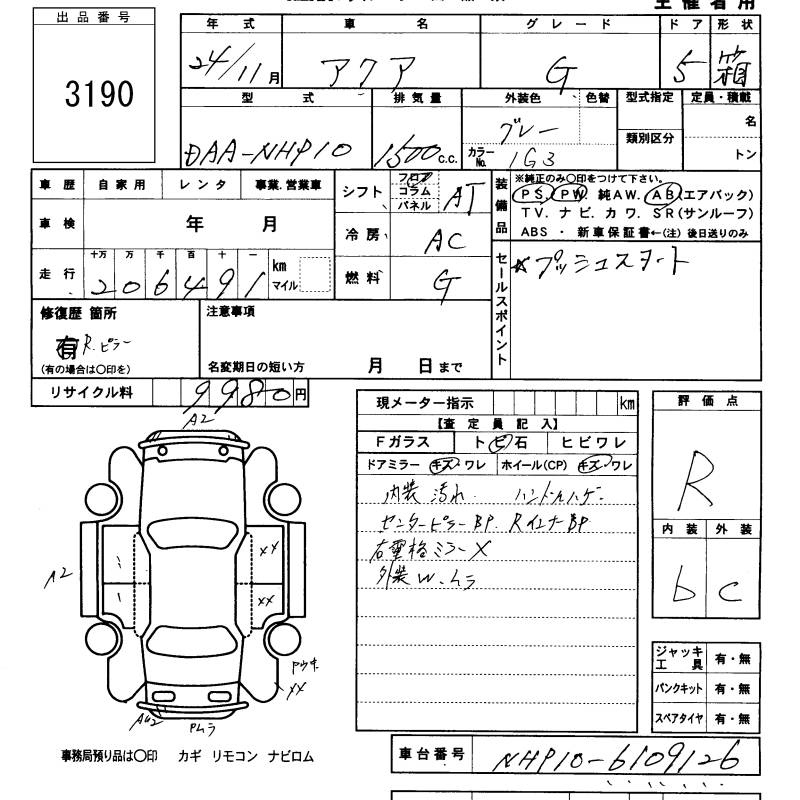 出品番号
3190
主催者用
年式 車名 グレード ドア 形状
24/11月 アクア G 5 箱
型式 排気量 外装色 色替 型式指定 定員・積載
DAA-NHP10 1500c.c. グレー カラーNo. 1G3 類別区分 名 トン
車歴 自家用 レンタ 事業.営業車
車検 年 月
走行 十万 万 千 百 十 一
206491 km マイル
シフト フロア コラム パネル AT
冷房 AC
燃料 G
装備品
※純正のみ〇印をつけて下さい。
PS. PW. 純AW. AB(エアバック)
TV. ナビ. カワ. SR(サンルーフ)
ABS ・ 新車保証書←(注) 後日送りのみ
セールスポイント
☆プッシュスタート
修復歴 箇所
有 R.ピラー
(有の場合は〇印を)
注意事項
名変期日の短い方 月 日まで
リサイクル料 9980円
現メーター指示 km
【査定員記入】
Fガラス トビ石 ヒビワレ
ドアミラー キズ・ワレ ホイール(CP) キズ・ワレ
内装 汚れ ハンドルハゲ
センターピラーBP. RインナーBP
右電格ミラーX
外装W.ムラ
評価点
R
内装 外装
b C
A2
A2
XX
XX
XX
Pムラ
ジャッキ工具 有・無
パンクキット 有・無
スペアタイヤ 有・無
事務局預り品は〇印 カギ リモコン ナビロム
車台番号 NHP10-6109126